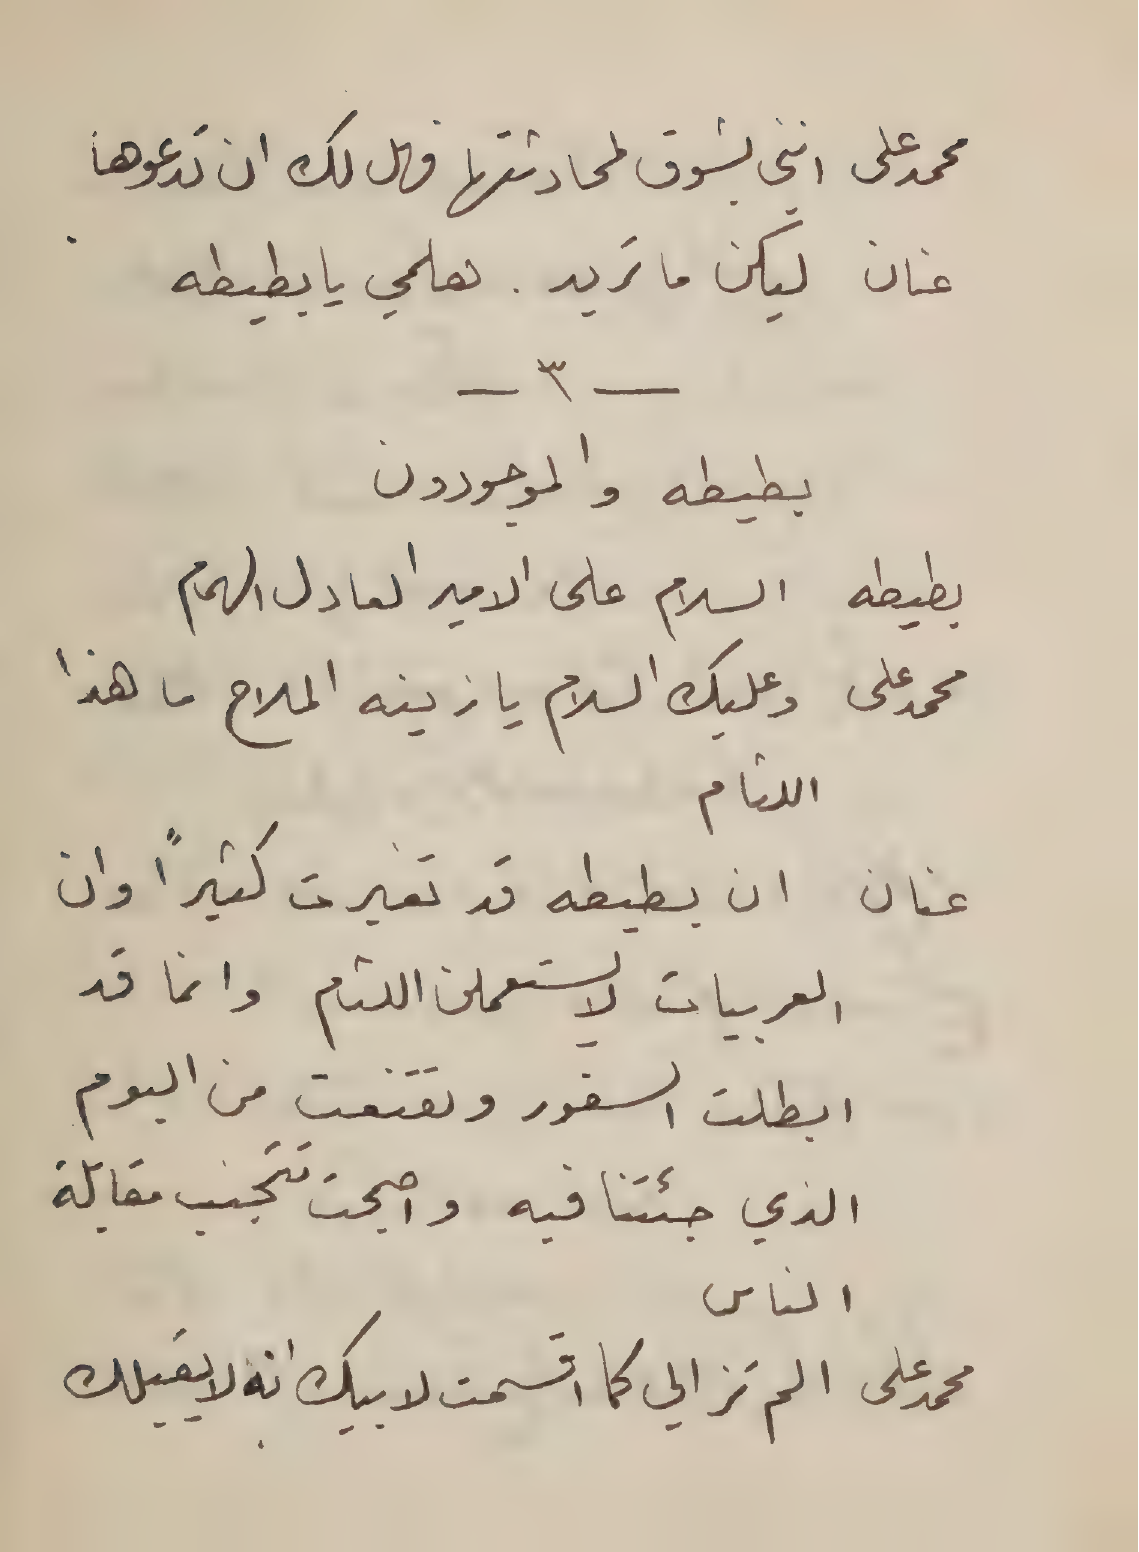 محمد علي انني بشوق لمحادثتها فهل لك ان تدعوها
عنان ليكن ما تريد . هلمي يا بطيطه
— ٣ —
بطيطه والموجودون
بطيطه السلام على الامير العادل الهمام
محمد علي وعليك السلام يا زينه الملاح ما هذا
اللثام
عنان ان بطيطه قد تغيرت كثيراً وان
العربيات لا يستعملن اللثام وانما قد
ابطلت السفور وتقنعت من اليوم
الذي جئتنا فيه واصبحت تتجنب مقابلة
الناس
محمد علي الم تزالي كما اقسمت لابيك انه لا يقبلك